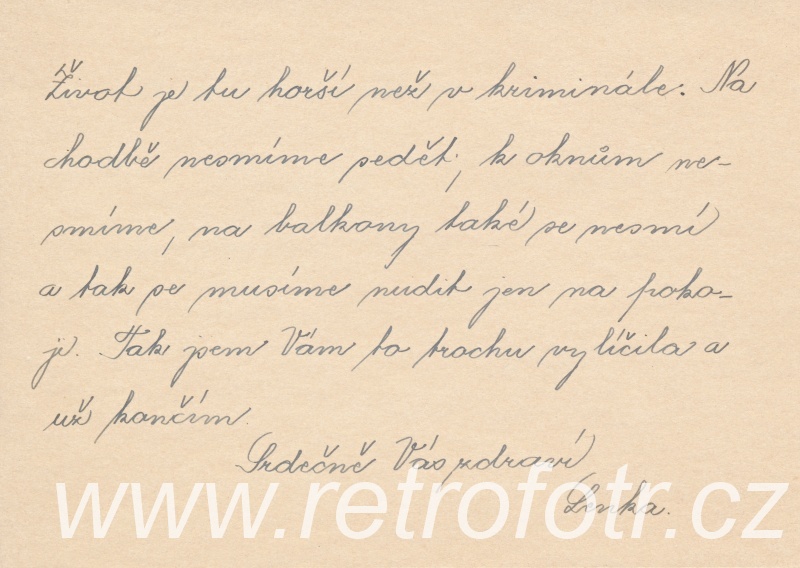 Život je tu horší než v kriminále. Na
chodbě nesmíme sedět, k oknům ne-
smíme, na balkony také se nesmí
a tak se musíme nudit jen na poko-
ji. Tak jsem Vám to trochu vylíčila a
už končím.
Srdečně Vás zdraví
Lenka.
www.retrofotr.cz